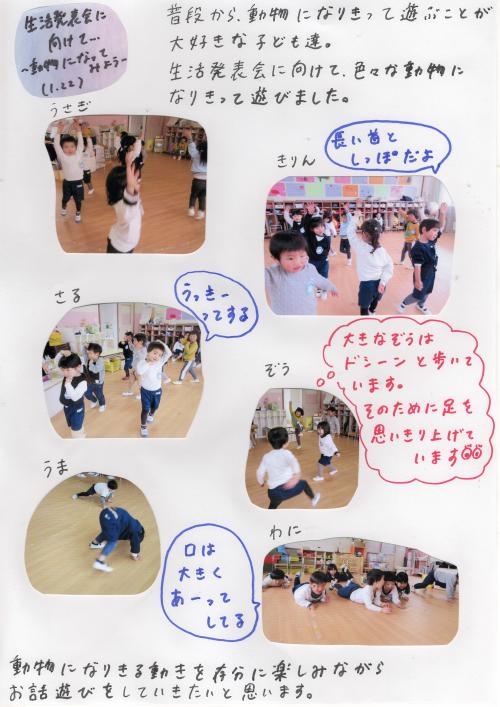 生活発表会に
向けて…
~動物になって
みよう~
(1.22)
普段から、動物になりきって遊ぶことが
大好きな子ども達。
生活発表会に向けて、色々な動物に
なりきって遊びました。
うさぎ
きりん
長い首と
しっぽだよ
さる
うっきー
ってする
ぞう
大きなぞうは
ドシーンと歩いて
います。
そのために足を
思いきり上げて
います
うま
口は
大きく
あーって
してる
わに
動物になりきる動きを存分に楽しみながら
お話遊びをしていきたいと思います。